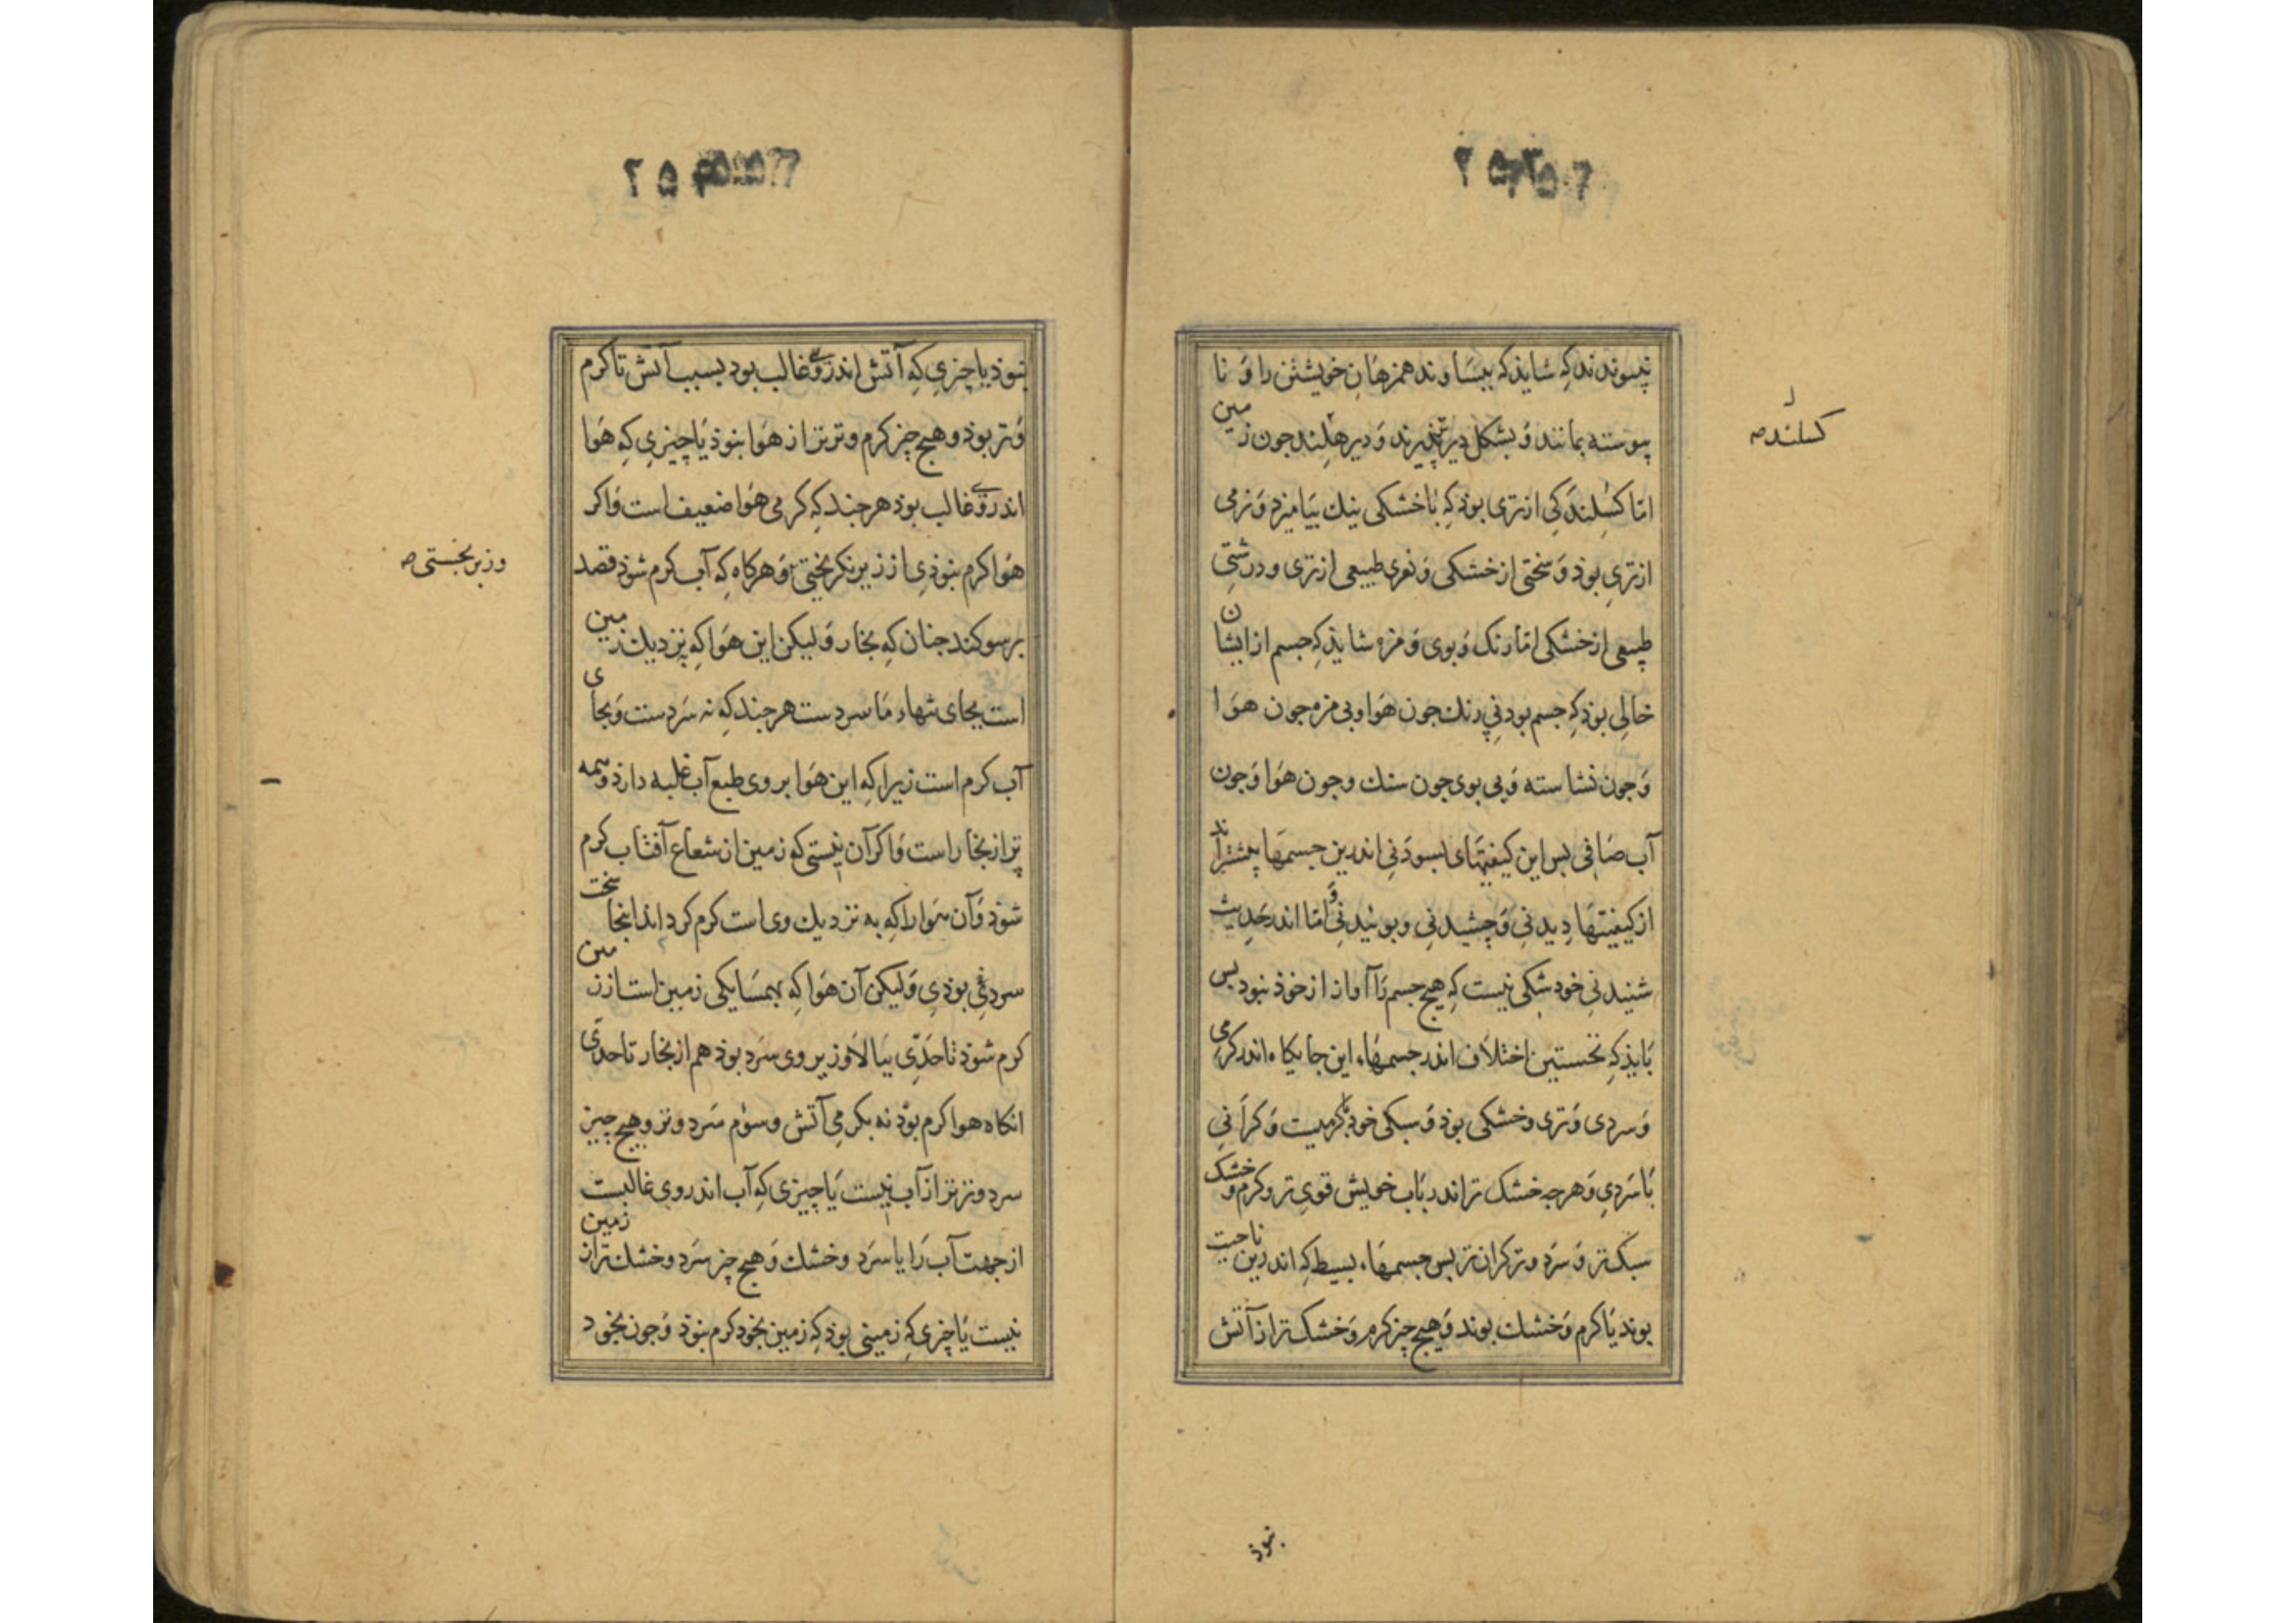 نپسوندند کِه شایذ که ببسَاوند همزهَانِ خویشتن را وَ نا
پیوسته بمانند وَ بشکل دیر پذیرند وَ دیر هلند جون زمین
امّا کسِلندَکی از تری بوذ کِه باخشکی نیك بیَامیزد وَ نرمی
از تریِ بوذ وَ سختی از خشکی وَ نغری طبیعی از تری و درشتی
طبیعی از خشکی امّا رنک وَ بوی وَ مزه شایذ کِه جسم از ایشان
خالی بوذ کِه جسم بود نِی رنك جون هَوا و بی مزه جون هوَا
وَجون نشاسته وَبی بوی جون سنك وجون هوَا وَجون
آب صَافی بس این کیفیتهَای بسوذنِی اندرین جسمهَا بیشترَاند
از کیفیتهَا دِیدنیِ وَ چشیدنیِ و بوئیدنیِ وَ امّا اندر حَدِیث
شنیدنیِ خود شکی نیست کِه هیچ جسم رَا آواز از خوذ نبود بس
بَایذ کِه نخستین اختلَاف اندر جسمهَاء این جایکاه اندر کرمی
وَ سردی وَ تری و خشکی بوذ وَ سبکی خود بَا کرمیست وَ کرَانیِ
بَا سَردیِ وَ هرجه خشک تر اندر بَاب خویش قویِ تر و کرم و خشک
سبک تر وَ سَرد و تر کران تر بس جسمهَاء بسیط کِه اندرین ناحیت
بوند یَا کرم وَ خشك بوند وَ هیچ چیز کرم وَ خشک تر از آتش
کسلنده
نبوذ
نبوذ یا چیزیِ کِه آتش اندر وی غالب بود بسبب آتش تا کرم
وَ تر بوذ و هیچ چیز کرم و تر تر از هوَا نبوذ یَا چیزیِ کِه هَوَا
اندر وی غالب بوذ هرجند کِه کرمی هوَا ضعیف است وَ اکر
هوَا کرم نبوذیِ از زیر نکریختی وَ هرکاه کِه آب کرم شوذ قصد
بر سو کند جنان کِه بخار وَ لیکن این هوَا کِه نزدیك زمین
است بجای تنهاء مَا سردست هرجند کِه نه سَردست وَ بجای
آب کرم است زیرا کِه این هوَا بر وی طبع آب غلبه دارذ و همه
پر از بخار است وَ اکر آن نیستی کِه زمین از شعاع آفتاب کرم
شوذ وَ آن هوَا را کِه به نزدیك وی است کرم کرد اند اینجا سخت
سردی بوذیِ وَ لیکن آن هوَا کِه بهمسَایکی زمین است از زمین
کرم شوذ تا حَدّی ببَالَا وَ زیر وی سَرد بوذ هم از بخار تا حدّی
انکاه هوا کرم بوذ نه بکرمیِ آتش و سوّم سَرد و تر و هیچ چیز
سرد و تر تر از آب نیست یَا چیزی کِه آب اندر وی غالبست
از جهت آب رَا یا سَرد و خشك وَ هیچ چیز سَرد و خشك تر از زمین
نیست یَا چیزی کِه زمینی بوذ کِه زمین بخود کرم نبوذ وَ جون بخود
و زبر بخستی